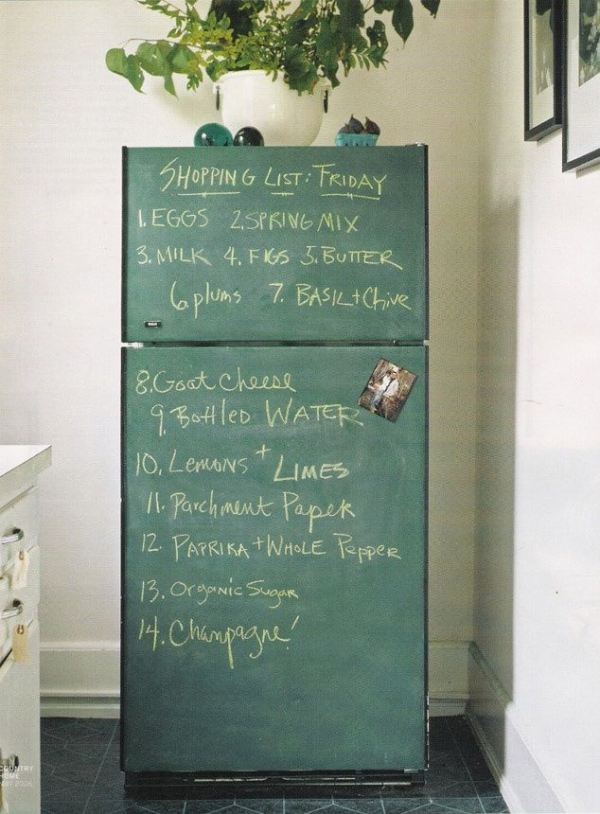 SHOPPING LIST: FRIDAY
1. EGGS 2. SPRING MIX
3. MILK 4. FIGS 5. BUTTER
6 plums 7. BASIL + Chive
8. Goat cheese
9. Bottled WATER
10. Lemons + LIMES
11. Parchment Paper
12. PAPRIKA + WHOLE Pepper
13. Organic Sugar
14. Champagne!
COUNTRY
HOME